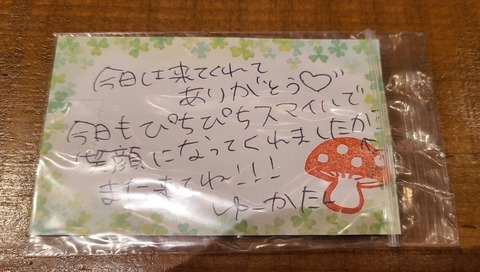 今日は来てくれて
ありがとう♡
今日もぴちぴちスマイルで
笑顔になってくれましたか
またきてね!!!